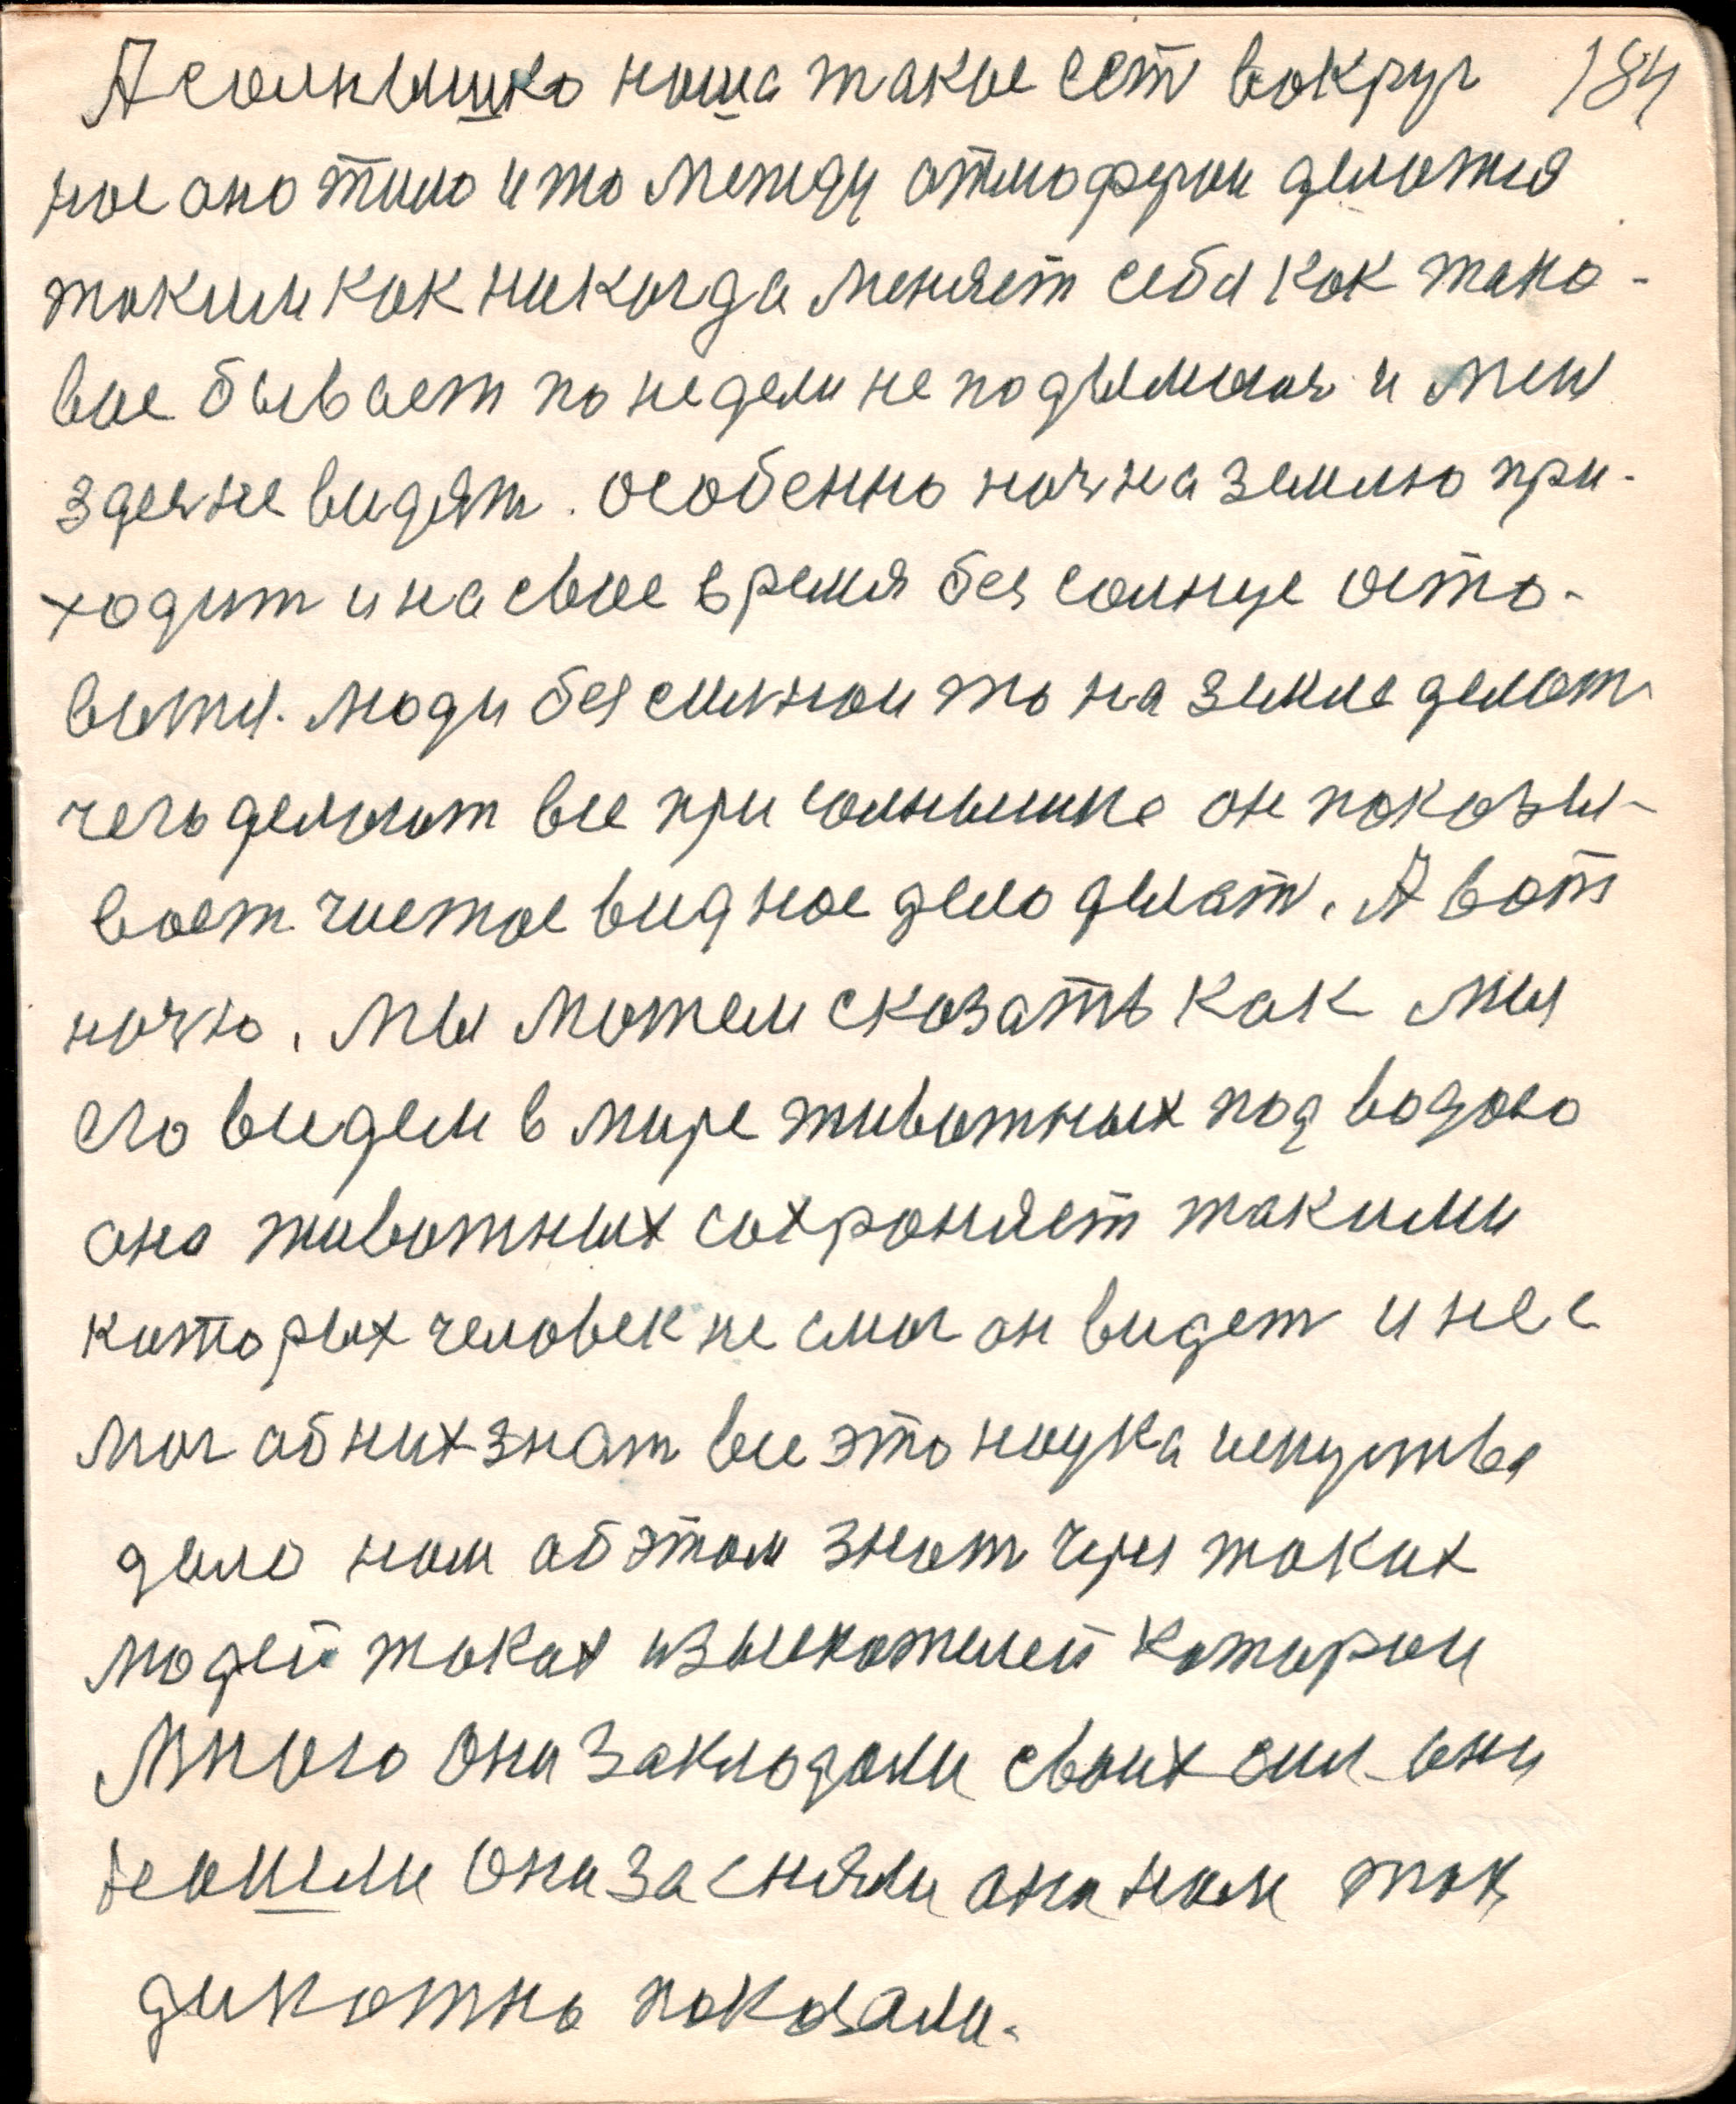 А солнышко наша такое ест вокруг 184
ное оно тило и то между атмофром делается
таким как никогда меняет себя как тако-
вое бывает по недели не подымаяс и меш
здес не видят. особенно ноч на землю при-
ходит и на свое время без солнце оста-
вится. люди без сильнои то на земле делат
чего делают все при солнышке он показы-
вает чистое видное дело делат. А вот
ночю, мы можем сказать как мы
его видем в мире животных под водою
оно животных сохраняет такими
которых человек не смог он видет и не с
мог об них знат все это наука искуства
дало нам об этом знат через таких
людей таких изыскателей которои
много они закладали своих сил они
нашли они засняли они нам так
дикатно показали.